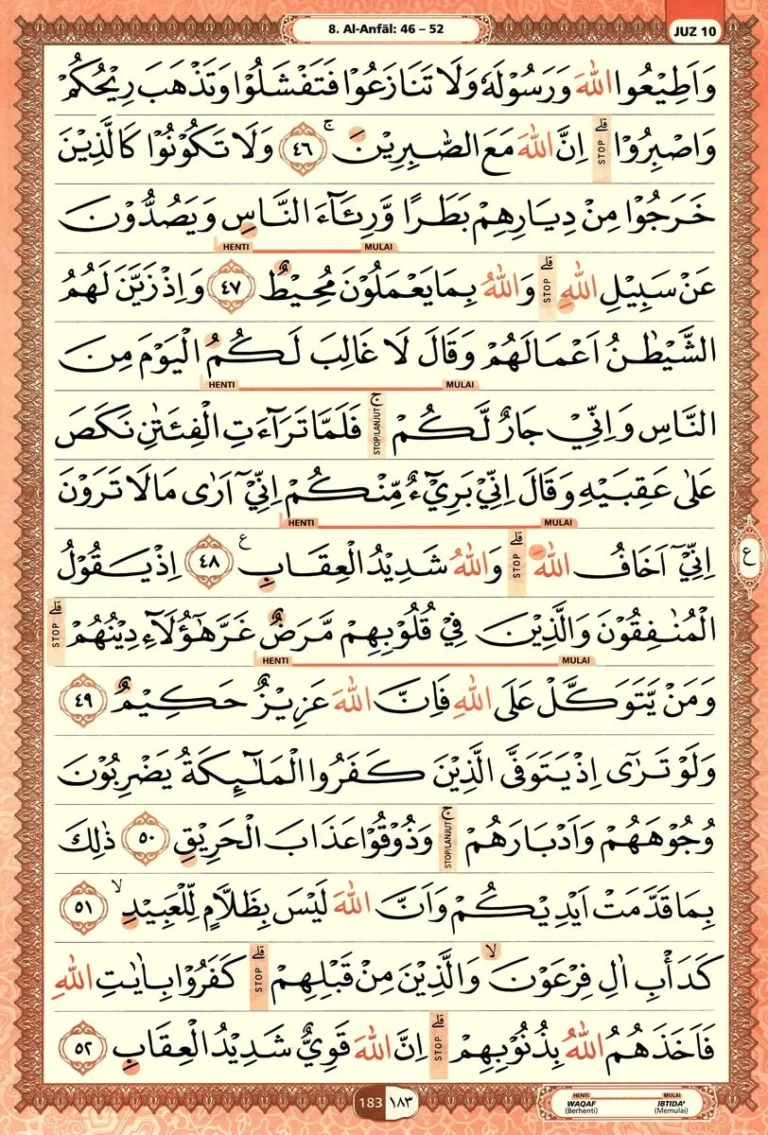 8. Al-Anfāl: 46 – 52
JUZ 10
وَاَطِيْعُوا اللّٰهَ وَرَسُوْلَهٗ وَلَا تَنَازَعُوْا فَتَفْشَلُوْا وَتَذْهَبَ رِيْحُكُمْ
وَاصْبِرُوْا ۗ STOP اِنَّ اللّٰهَ مَعَ الصّٰبِرِيْنَ ۚ ٤٦ وَلَا تَكُوْنُوْا كَالَّذِيْنَ
خَرَجُوْا مِنْ دِيَارِهِمْ بَطَرًا وَّرِئَاۤءَ النَّاسِ وَيَصُدُّوْنَ
MULAI HENTI
عَنْ سَبِيْلِ اللّٰهِ ۗ STOP وَاللّٰهُ بِمَا يَعْمَلُوْنَ مُحِيْطٌ ٤٧ وَاِذْ زَيَّنَ لَهُمُ
الشَّيْطٰنُ اَعْمَالَهُمْ وَقَالَ لَا غَالِبَ لَكُمُ الْيَوْمَ مِنَ
MULAI HENTI
النَّاسِ وَاِنِّيْ جَارٌ لَّكُمْ ۚ STOP/LANJUT فَلَمَّا تَرَاۤءَتِ الْفِئَتٰنِ نَكَصَ
عَلٰى عَقِبَيْهِ وَقَالَ اِنِّيْ بَرِيْۤءٌ مِّنْكُمْ اِنِّيْٓ اَرٰى مَا لَا تَرَوْنَ
MULAI HENTI
اِنِّيْٓ اَخَافُ اللّٰهَ ۗ STOP وَاللّٰهُ شَدِيْدُ الْعِقَابِ ࣖ ٤٨ اِذْ يَقُوْلُ
ع
الْمُنٰفِقُوْنَ وَالَّذِيْنَ فِيْ قُلُوْبِهِمْ مَّرَضٌ غَرَّ هٰٓؤُلَاۤءِ دِيْنُهُمْ ۗ STOP
MULAI HENTI
وَمَنْ يَّتَوَكَّلْ عَلَى اللّٰهِ فَاِنَّ اللّٰهَ عَزِيْزٌ حَكِيْمٌ ٤٩
وَلَوْ تَرٰٓى اِذْ يَتَوَفَّى الَّذِيْنَ كَفَرُوا الْمَلٰۤىِٕكَةُ يَضْرِبُوْنَ
وُجُوْهَهُمْ وَاَدْبَارَهُمْ ۚ STOP/LANJUT وَذُوْقُوْا عَذَابَ الْحَرِيْقِ ٥٠ ذٰلِكَ
بِمَا قَدَّمَتْ اَيْدِيْكُمْ وَاَنَّ اللّٰهَ لَيْسَ بِظَلَّامٍ لِّلْعَبِيْدِ ۙ ٥١
كَدَأْبِ اٰلِ فِرْعَوْنَ ۙ وَالَّذِيْنَ مِنْ قَبْلِهِمْ ۗ STOP كَفَرُوْا بِاٰيٰتِ اللّٰهِ
فَاَخَذَهُمُ اللّٰهُ بِذُنُوْبِهِمْ ۗ STOP اِنَّ اللّٰهَ قَوِيٌّ شَدِيْدُ الْعِقَابِ ٥٢
183 ١٨٣
HENTI MULAI
WAQAF IBTIDA'
(Berhenti) (Memulai)